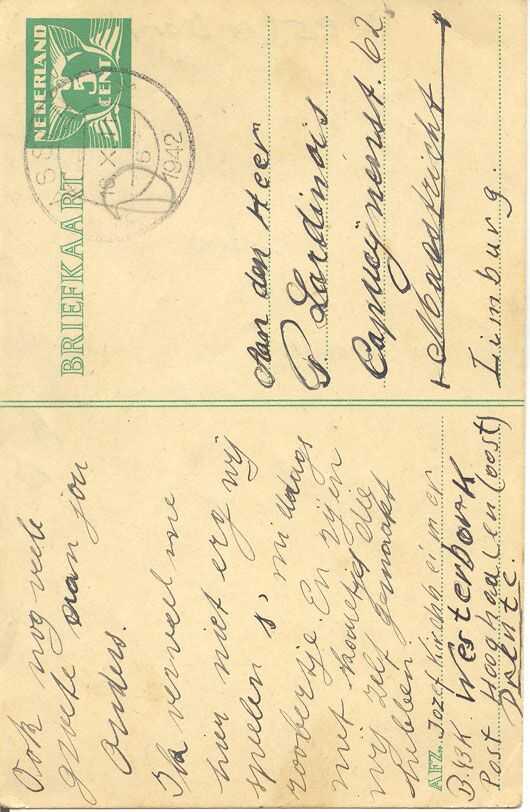 Ook nog veele
groete van jou
ouders.
Ik verveel me
hier niet erg wij
spelen s, middags
roovertje. En zijen
met thoutjes die
wij zelf gemaakt
hebben.
AFZ. Jozef
B.43K Westerbork
Post Hooghaalen (oost)
Drente.
BRIEFKAART
NEDERLAND
5
CENT
1942
Aan den Heer
P. Lardinois
Capucijnenst. 62
Maastricht
Limburg.